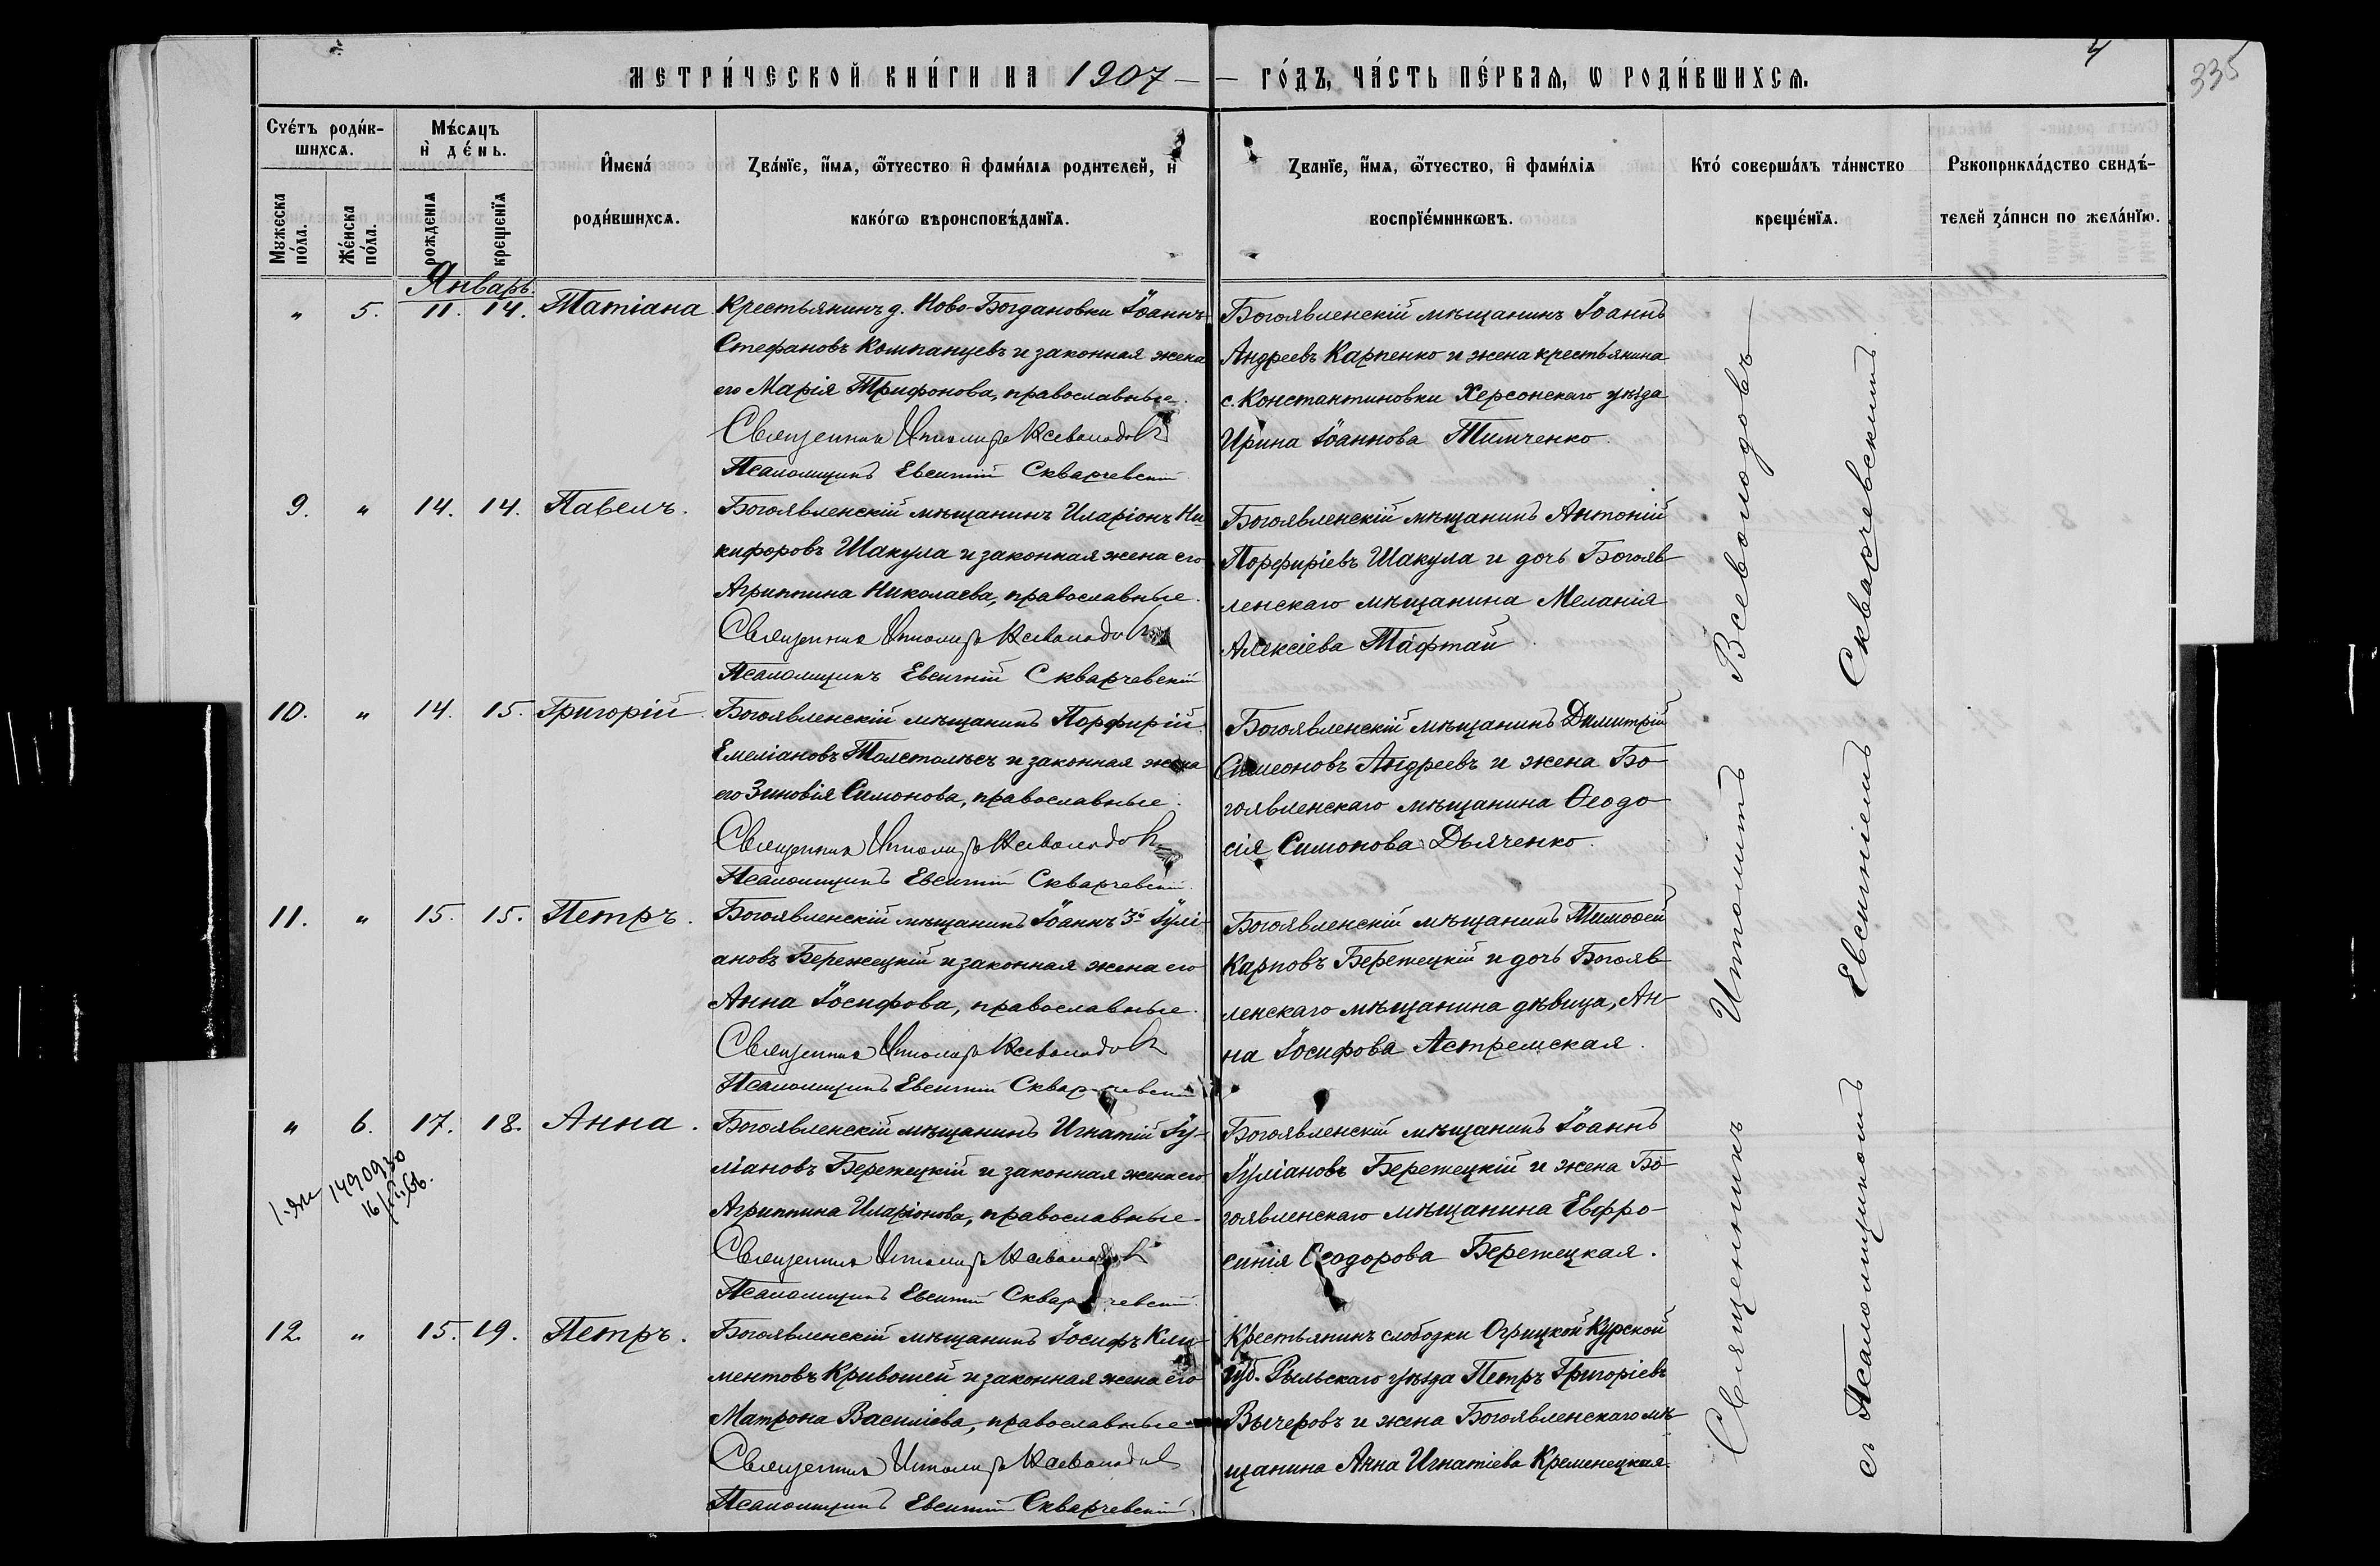 МЕТРИ́ЧЕСКОЙ КНИ́ГИ НА 1907 — — ГО́ДЪ, ЧА́СТЬ ПЕ́РВАѦ, Ѡ РОДИ́ВШИХСѦ.
4
335
Счéтъ роди́в-
шихсѧ.
Мꙋжеска по́ла.
Же́нска по́ла.
Мѣ́сѧцъ
и҆ де́нь.
рожденїѧ
крещенїѧ
И҆мена́
роди́вшихсѧ.
Ꙁва́нїе, и҆́мѧ, ѿтчество и҆ фами́лїѧ родителей, и҆
како́гѡ вѣроисповѣ́данїѧ.
Ꙁванїе, и҆́мѧ, ѿтчество, и҆ фами́лїѧ
воспрїе́мниковъ.
Кто́ соверша́лъ та́инство
креще́нїѧ.
Рꙋкоприкла́дство свидѣ́-
телей ꙁа́писи по жела́нїю.
Январь.
" 5. 11. 14. Татіана. Крестьянинъ д. Ново-Богдановки Іоаннъ
Стефановъ Компанцевъ и законная жена
его Марія Трифонова, православные.
Священникъ Ипполитъ Всеволодовъ
Псаломщикъ Евсигній Скварчевскій
Богоявленскій мѣщанинъ Іоаннъ
Андреевъ Карпенко и жена крестьянина
с. Константиновки Херсонскаго уѣзда
Ирина Іоаннова Тимченко.
9. " 14. 14. Павелъ. Богоявленскій мѣщанинъ Иларіонъ Ни-
кифоровъ Шакула и законная жена его
Агриппина Николаева, православные.
Священникъ Ипполитъ Всеволодовъ
Псаломщикъ Евсигній Скварчевскій
Богоявленскій мѣщанинъ Антоній
Порфиріевъ Шакула и дочь Богояв-
ленскаго мѣщанина Меланія
Алексіева Тафтай.
10. " 14. 15. Григорій. Богоявленскій мѣщанинъ Порфирій
Емеліановъ Толстолѣсъ и законная жена
его Зиновія Симонова, православные.
Священникъ Ипполитъ Всеволодовъ
Псаломщикъ Евсигній Скварчевскій.
Богоявленскій мѣщанинъ Димитрій
Симеоновъ Андреевъ и жена Бо-
гоявленскаго мѣщанина Ѳеодо-
сія Симонова Дьяченко.
11. " 15. 15. Петръ. Богоявленскій мѣщанинъ Іоаннъ 3й Іулі-
ановъ Бережецкій и законная жена его
Анна Іосифова, православные.
Священникъ Ипполитъ Всеволодовъ
Псаломщикъ Евсигній Скварчевскій
Богоявленскій мѣщанинъ Тимоѳей
Карповъ Бережецкій и дочь Богояв-
ленскаго мѣщанина дѣвица, Ан-
на Іосифова Ястремская.
" 6. 17. 18. Анна. Богоявленскій мѣщанинъ Игнатій Іу-
ліановъ Бережецкій и законная жена его
Агриппина Иларіонова, православные.
Священникъ Ипполитъ Всеволодовъ
Псаломщикъ Евсигній Скварчевскій.
Богоявленскій мѣщанинъ Іоаннъ
Іуліановъ Бережецкій и жена Бо-
гоявленскаго мѣщанина Евфро-
синія Ѳеодорова Бережецкая.
12. " 15. 19. Петръ. Богоявленскій мѣщанинъ Іосифъ Кли-
ментовъ Кривошей и законная жена его
Матрона Василіева, православные
Священникъ Ипполитъ Всеволодовъ
Псаломщикъ Евсигній Скварчевскій.
Крестьянинъ слободки Огрицкой Курской
губ. Рыльскаго уѣзда Петръ Григоріевъ
Вычеровъ и жена Богоявленскаго мѣ-
щанина Анна Игнатіева Кременецкая.
Священникъ Ипполитъ Всеволодовъ
съ Псаломщикомъ Евсигніемъ Скварчевскимъ.